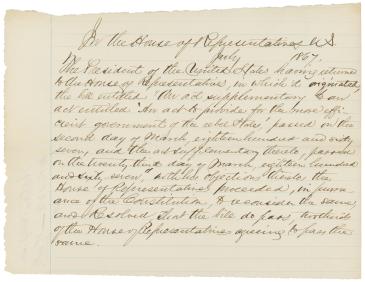 In the House of Representatives U.S.
July 1867.
The President of the United States having returned
to the House of Representatives, in which it originated,
the bill entitled "An act supplementary to an
act entitled 'An act to provide for the more effi-
cient government of the rebel States,' passed on the
second day of March, eighteen hundred and sixty
seven, and the act supplementary thereto, passed
on the twenty third day of March, eighteen hundred
and sixty seven," with his objections thereto the
House of Representatives proceeded, in pursu-
ance of the Constitution, to reconsider the same,
and Resolved that the bill do pass, two thirds
of the House of Representatives agreeing to pass the
same.